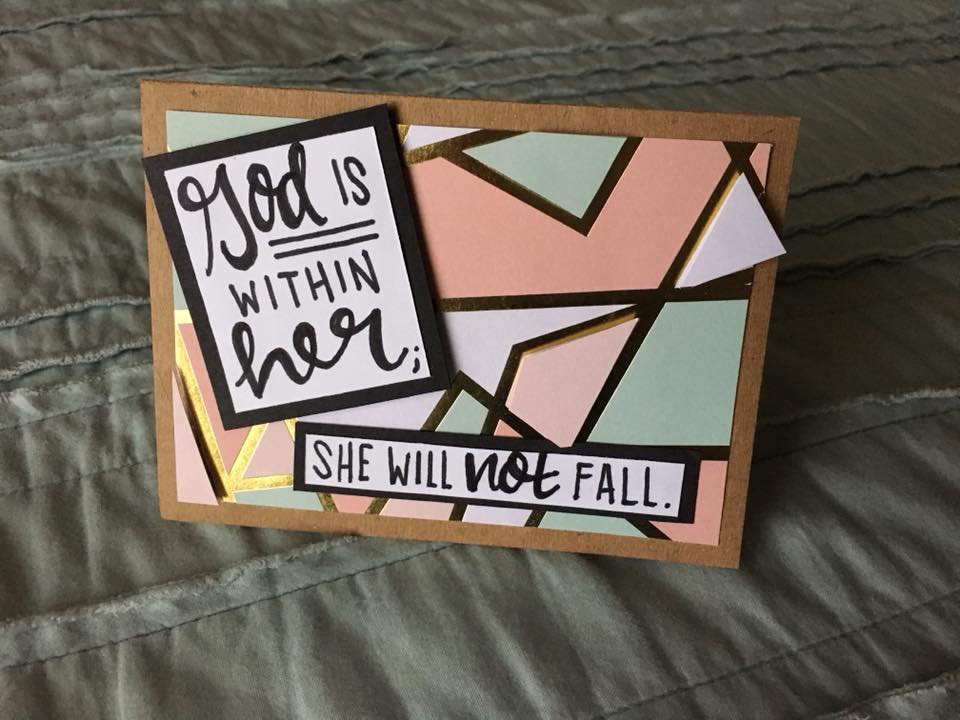 God IS
WITHIN
her;
SHE WILL not FALL.